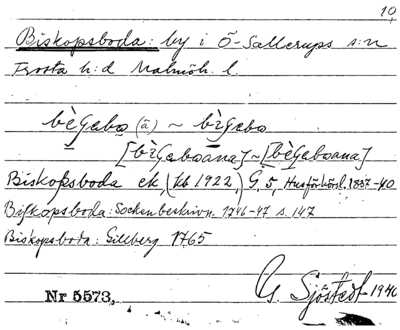 10
Biskopsboda: by i Ö-Sallerups s:n
Frosta h:d Malmöh. l.
bègəbo (ā) ~ bìgəbo
[bìgəboāna] ~ [bègəboana]
Biskopsboda ek. (kb 1922) G, 5, Husförhörsl. 1837-40
Biskopsboda: Sockenbeskrivn. 1746-47 s. 147
Biskopsbota: Gillberg 1765
G. Sjöstedt 1940
Nr 5573,